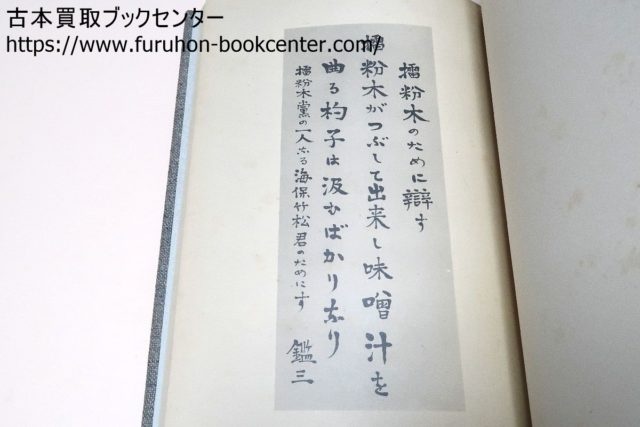 古本買取ブックセンター
https://www.furuhon-bookcenter.com/
擂粉木のために辯す
擂粉木がつぶして出来し味噌汁を
曲る杓子は汲むばかりなり
擂粉木党の一人なる海保竹松君のためにす
鑑三